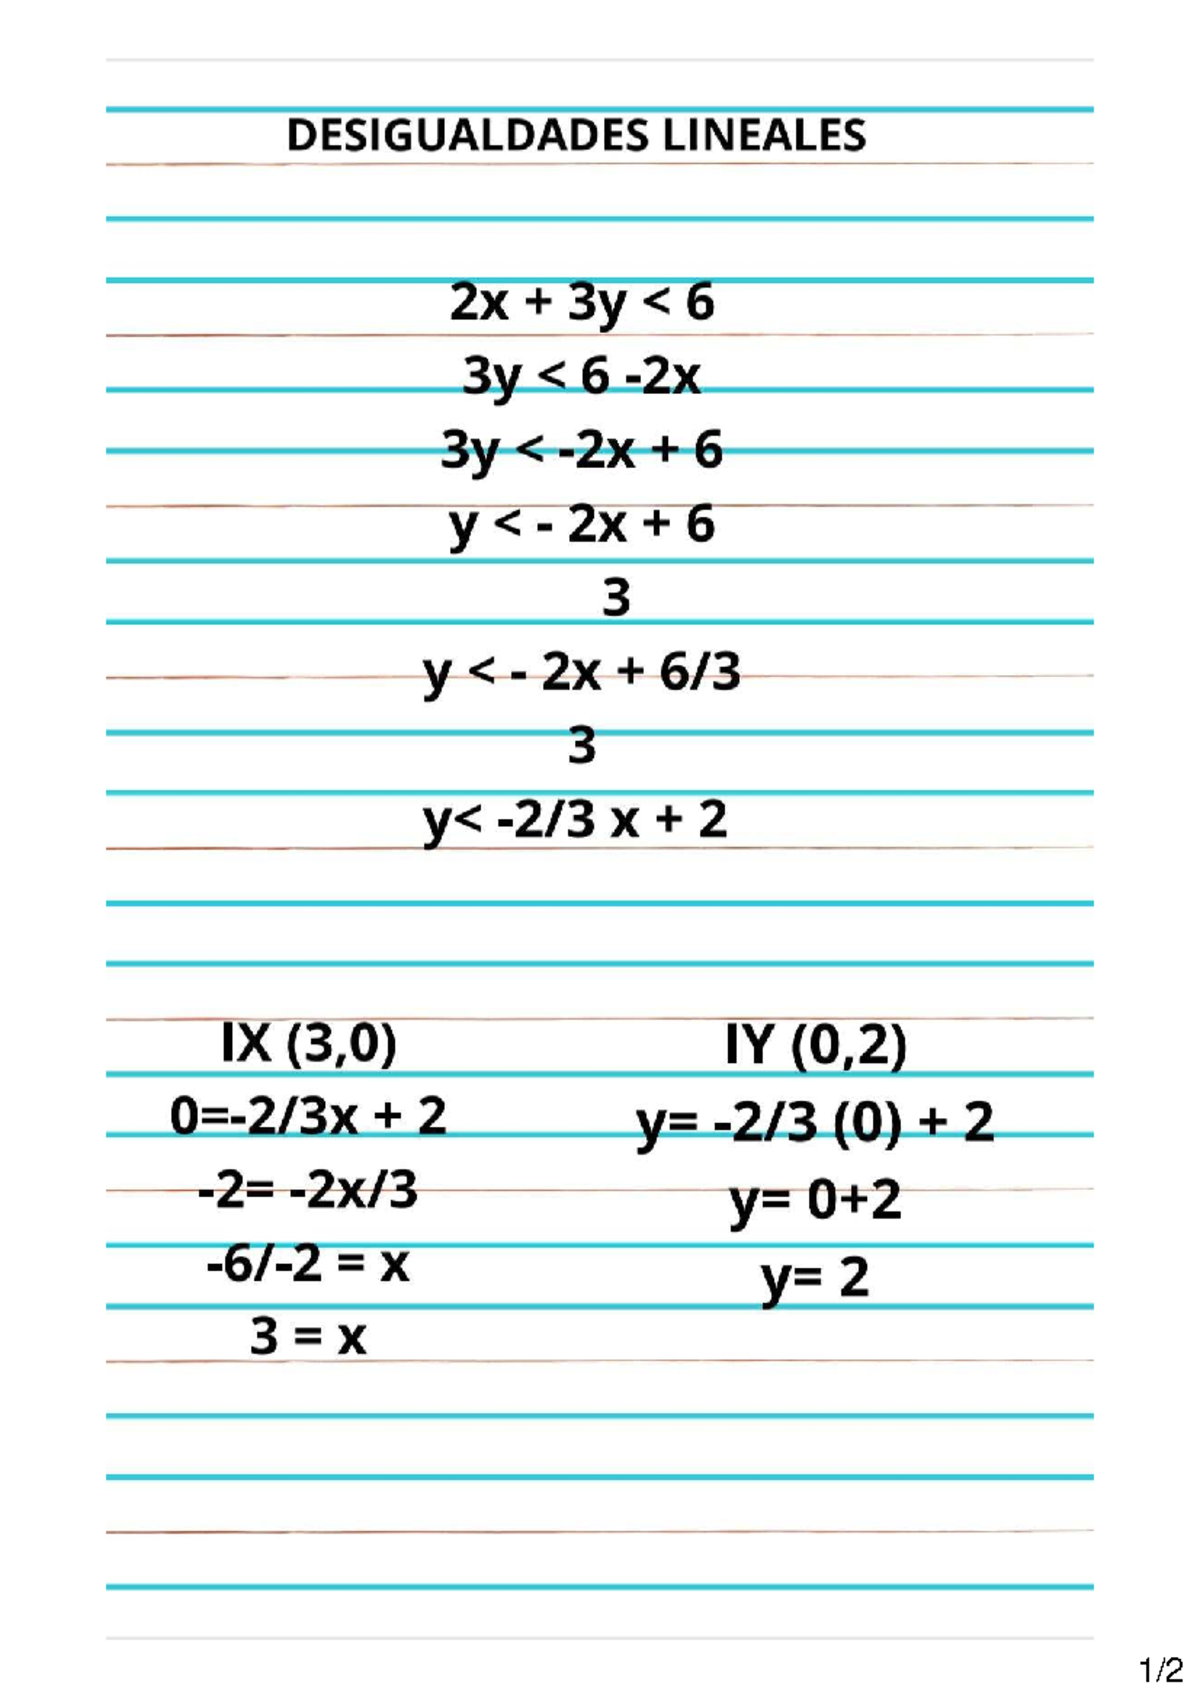 DESIGUALDADES LINEALES
2x + 3y < 6
3y < 6 -2x
3y < -2x + 6
y < - 2x + 6
3
y < - 2x + 6/3
3
y< -2/3 x + 2
IX (3,0)
0=-2/3x + 2
-2= -2x/3
-6/-2 = x
3 = x
IY (0,2)
y= -2/3 (0) + 2
y= 0+2
y= 2
1/2